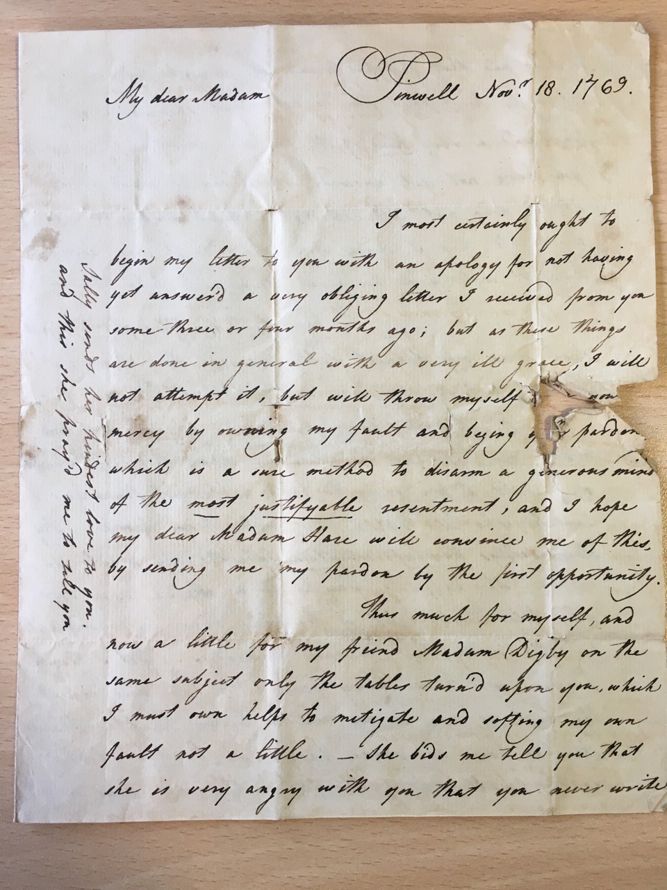 My dear Madam
Pinwell Novr. 18. 1769.
I most certainly ought to
begin my letter to you with an apology for not having
yet answer'd a very obliging letter I received from you
some three or four months ago; but as these things
are done in general with a very ill grace, I will
not attempt it, but will throw myself now
mercy by owning my fault and beging pardon
which is a sure method to disarm a generous mind
of the most justifyable resentment, and I hope
my dear Madam Hare will convince me of this,
by sending me my pardon by the first opportunity.
Thus much for myself, and
now a little for my friend Madam Digby on the
same subject only the tables turn'd upon you, which
I must own helps to mitigate and softing my own
fault not a little. — She bids me tell you that
she is very angry with you that you never write
Sally sends her kindest love to you.
and this she pray'd me to tell you